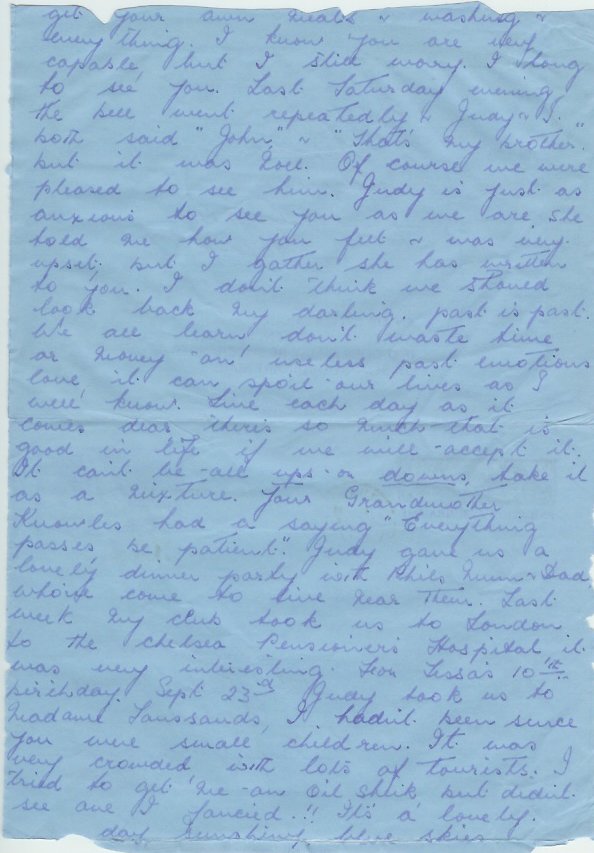 get your own meals & washing &
everything. I know you are very
capable, but I still worry. I long
to see you. Last Saturday evening
the bell went repeatedly & Judy & I
both said "John" & "That's my brother".
but it was Noel. Of course we were
pleased to see him. Judy is just as
anxious to see you as we are she
told me how you felt & was very
upset. but I gather she has written
to you. I don't think we should
look back my darling. past is past.
We all learn don't waste time
or money on useless past emotions
love, it can spoil our lives as I
well know. Live each day as it
comes dear there's so much that is
good in life if we will accept it.
It can't be all ups or downs, take it
as a mixture. Your Grandmother
Knowles had a saying "Everything
passes be patient". Judy gave us a
lovely dinner party with Phil's Mum & Dad
who've come to live near them. Last
week my club took us to London
to the Chelsea Pensioners Hospital it
was very interesting. For Lissa's 10th
birthday Sept 23rd Judy took us to
Madame Taussauds, I hadn't been since
you were small children. It was
very crowded with lots of tourists. I
tried to get me an oil sheik but didn't
see one I fancied!! It's a lovely
day sunshiny blue skies